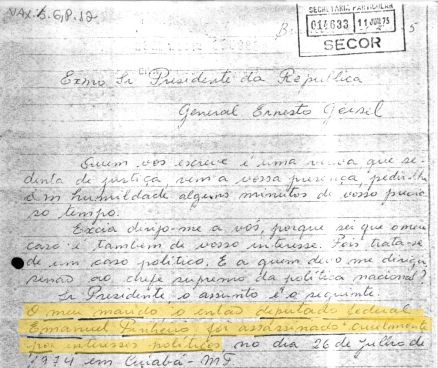 VAX. 6, G, P. 12
SECRETARIA PARTICULAR
014633 11 JUN 75
SECOR
Exmo Sr Presidente da República
General Ernesto Geisel
Quem vos escreve é uma viúva que se-
denta de justiça vem a vossa presença, pedir-lhe
em humildade alguns minutos de vosso precio
so tempo.
Excia dirijo-me a vós, porque sei que o meu
caso é também de vosso interesse. Pois trata-se
de um caso político. E a quem devo me dirigir
senão ao chefe supremo da política nacional?
Sr Presidente, o assunto é o seguinte.
O meu marido o então deputado federal
Emanuel Pinheiro, foi assassinado cruelmente
por interesses políticos no dia 26 de julho de
1974 em Cuiabá - MT